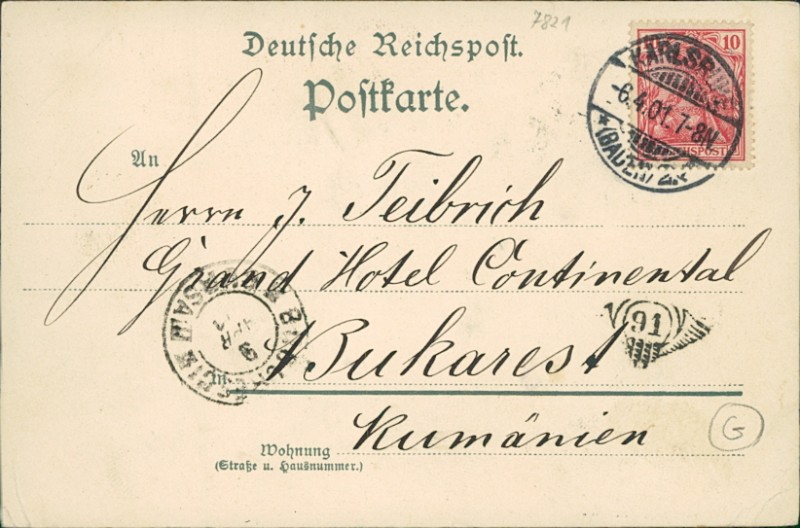 7821
Deutsche Reichspost.
Postkarte.
10
KARLSR
-6.4.01.7-8N.
*(BADEN) 2.*
REICHSPOST
An
Herrn J. Teibrich
Grand Hotel Continental
91
APR
in Bukarest
Rumänien
G
Wohnung
(Straße u. Hausnummer.)